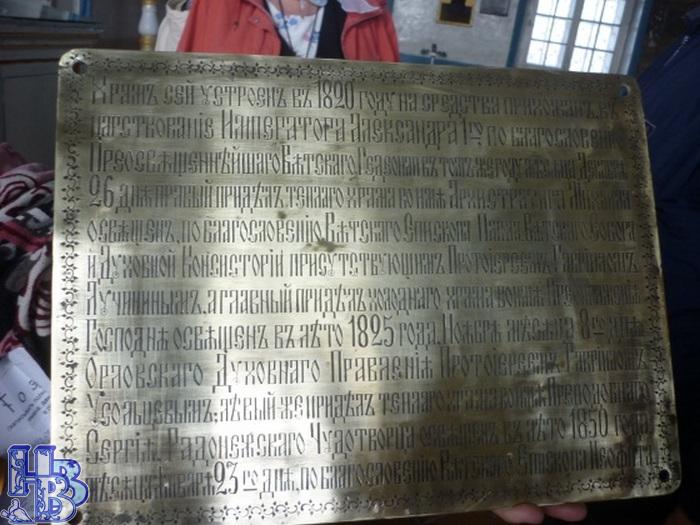 Храмъ сей устроенъ въ 1820 году на средства прихожанъ, въ
царствованіе Императора Александра 1го по благословенію
Преосвященнѣйшаго Вятскаго Гедеона въ томъ же году мѣсяца Декабря
26 дня правый придѣлъ теплаго храма во имя Архистратига Михаила
освященъ, по благословенію Вятскаго Епископа Павла Вятскаго собора
и Духовной Консисторіи присутствующимъ Протоіереемъ
Лучининымъ, а главный придѣлъ холоднаго храма во имя Преображенія
Господня освященъ въ лѣто 1825 года, Ноября мѣсяца 8го дня
Орловскаго Духовнаго Правленія Протоіереемъ Гавріиломъ
Усольцевымъ; лѣвый-же придѣлъ теплаго храма во имя Преподобнаго
Сергія, Радонежскаго Чудотворца освященъ въ лѣто 1850 года
мѣсяца Января 23го дня, по благословенію Епископа Неофита
НВ